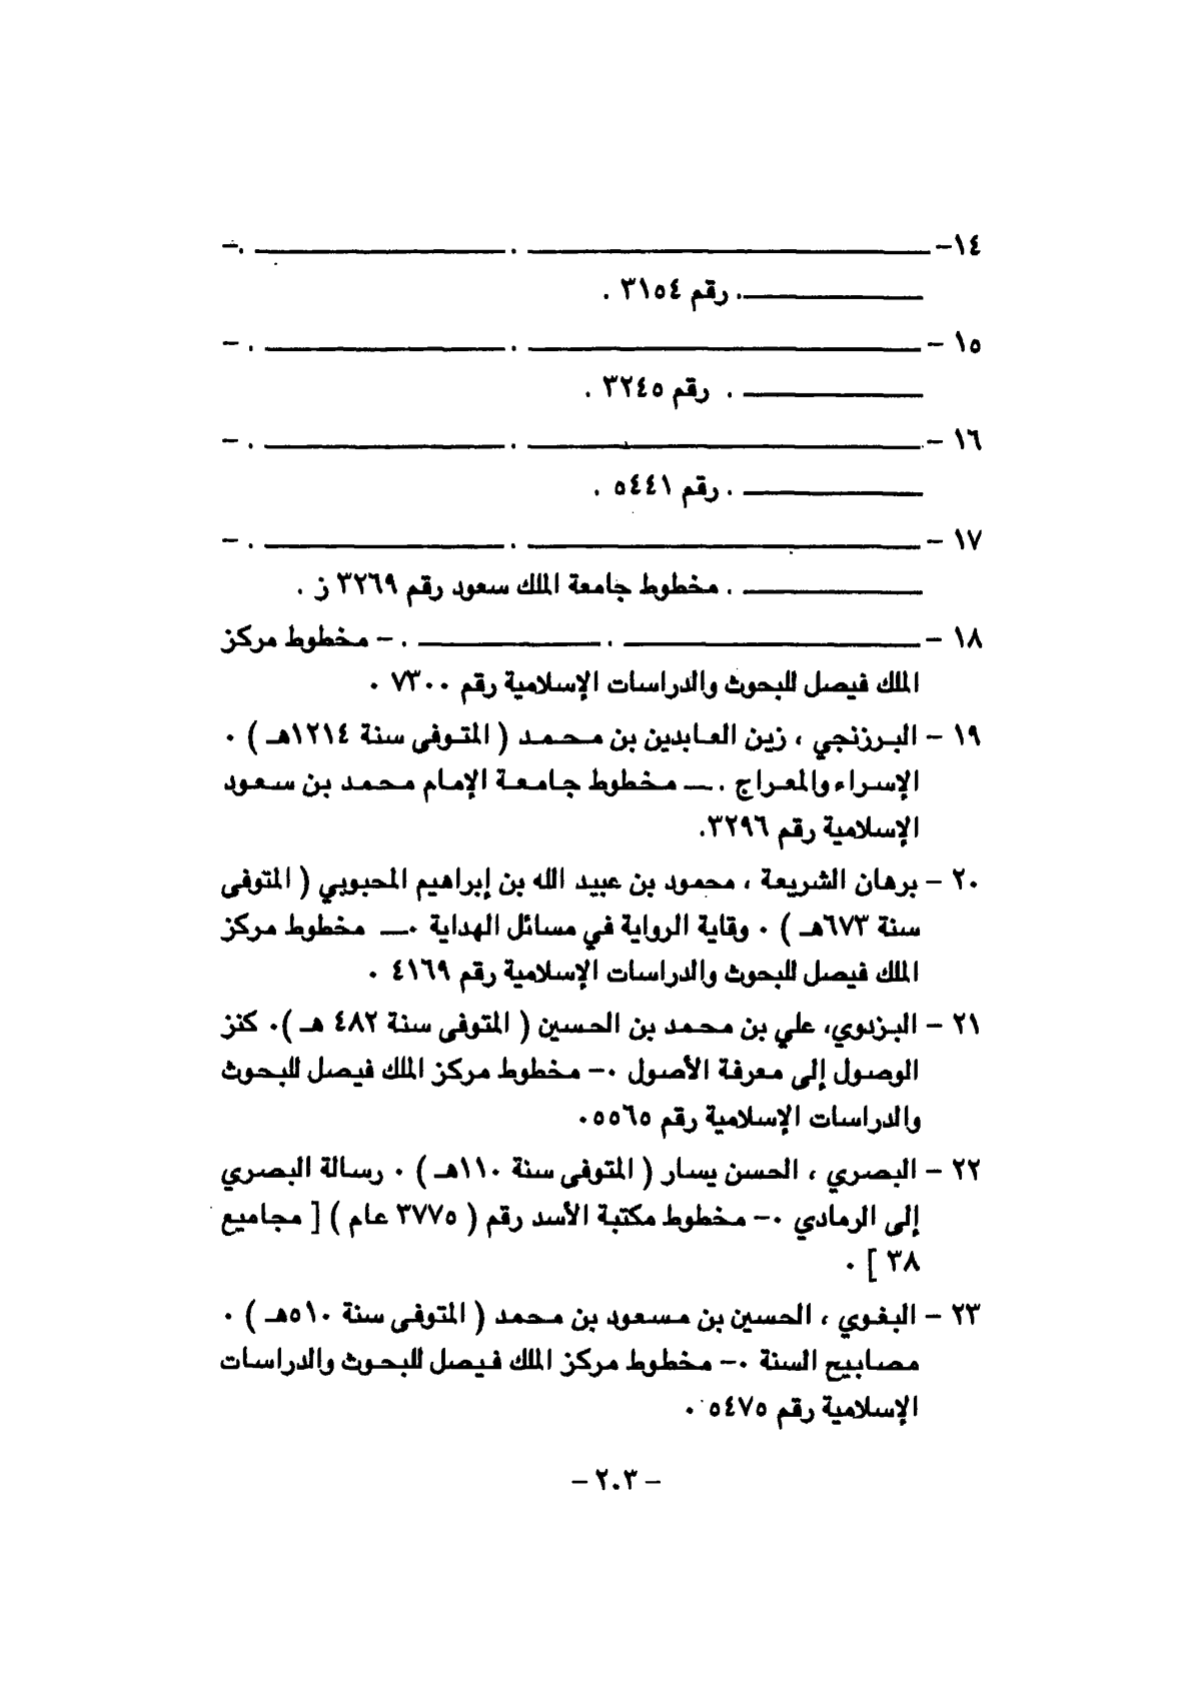 ١٤- ـــــــــــــــــ . ـــــــــــــــــ .-
ـــــــــــــــــ. رقم ٣١٥٤ .
١٥ - ـــــــــــــــــ . ـــــــــــــــــ . -
ـــــــــــــــــ . رقم ٣٢٤٥ .
١٦ - ـــــــــــــــــ . ـــــــــــــــــ . -
ـــــــــــــــــ . رقم ٥٤٤١ .
١٧ - ـــــــــــــــــ . ـــــــــــــــــ . -
ـــــــــــــــــ . مخطوط جامعة الملك سعود رقم ٣٢٦٩ ز .
١٨ - ـــــــــــــــــ . ـــــــــــــــــ . - مخطوط مركز
الملك فيصل للبحوث والدراسات الإسلامية رقم ٧٣٠٠ .
١٩ - البرزنجي ، زين العابدين بن محمد ( المتوفى سنة ١٢١٤هـ ) .
الإسراء والمعراج . ــ مخطوط جامعة الإمام محمد بن سعود
الإسلامية رقم ٣٢٩٦.
٢٠ - برهان الشريعة ، محمود بن عبيد الله بن إبراهيم المحبوبي ( المتوفى
سنة ٦٧٣هـ ) . وقاية الرواية في مسائل الهداية .ــ مخطوط مركز
الملك فيصل للبحوث والدراسات الإسلامية رقم ٤١٦٩ .
٢١ - البزدوي، علي بن محمد بن الحسين ( المتوفى سنة ٤٨٢ هـ ). كنز
الوصول إلى معرفة الأصول .- مخطوط مركز الملك فيصل للبحوث
والدراسات الإسلامية رقم ٥٥٦٥.
٢٢ - البصري ، الحسن يسار ( المتوفى سنة ١١٠هـ ) . رسالة البصري
إلى الرمادي .- مخطوط مكتبة الأسد رقم ( ٣٧٧٥ عام ) [ مجاميع
٣٨ ] .
٢٣ - البغوي ، الحسين بن مسعود بن محمد ( المتوفى سنة ٥١٠هـ ) .
مصابيح السنة .- مخطوط مركز الملك فيصل للبحوث والدراسات
الإسلامية رقم ٥٤٧٥ .
- ٢٠٣ -